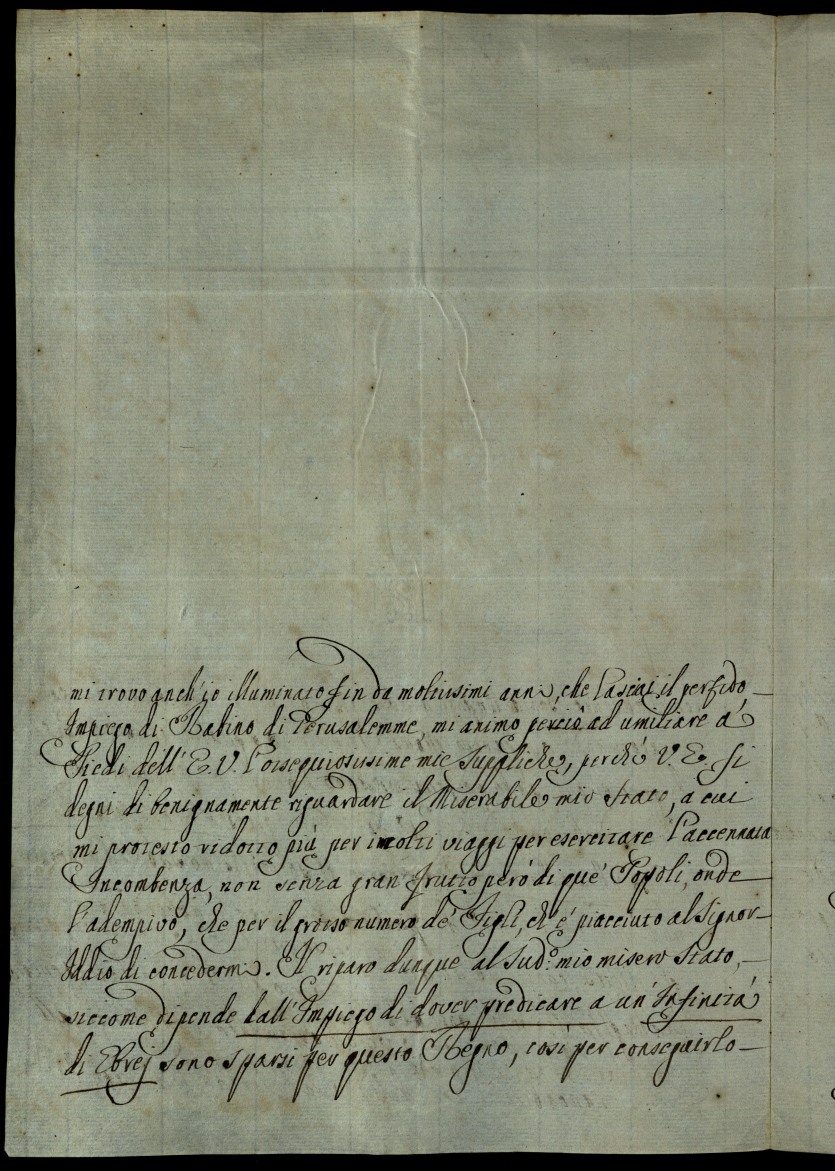 mi trovo anch'io illuminato fin da moltissimi anni, che lasciai il perfido
Impiego di Rabino di Gerusalemme, mi animo perciò ad umiliare a'
Piedi dell'E. V. l'ossequiosissime mie suppliche, perchè V. E. si
degni di benignamente riguardare il Miserabile mio stato, a cui
mi protesto ridotto più per i molti viaggi per esercitare l'accennata
Incombenza, non senza gran frutto però di que' Popoli, onde
l'adempivo, che per il grosso numero de' Figli, ch'è piacciuto al Signor
Iddio di concedermi. Il riparo dunque al sud.º mio misero stato,
siccome dipende dall'Impiego di dover predicare a un'Infinità
di Ebrej sono sparsi per questo Regno, così per conseguirlo